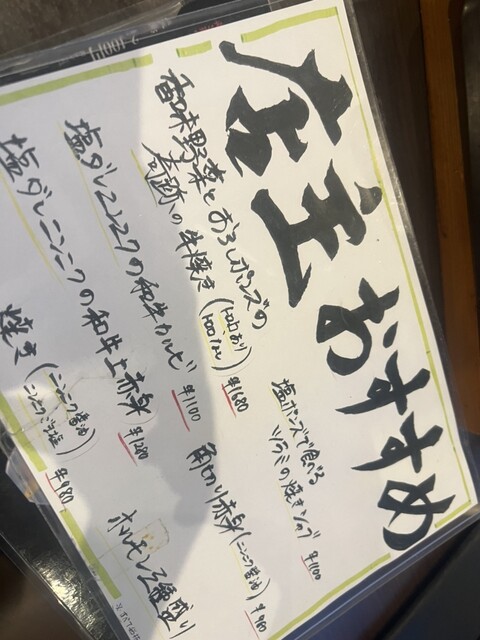 店主おすすめ
香味野菜とおろしポンズの
奇跡の牛焼き(トロロあり
トロロなし) ¥1680
塩ダレニンニクの和牛カルビ ¥1100
塩ダレニンニクの和牛上赤身 ¥1280
焼き(ニンニク醤油
¥980
塩ポンズで食べる
ツラミの焼きシャブ ¥1100
角切り赤身(ニンニク醤油) ¥980
ホルモン三種盛り